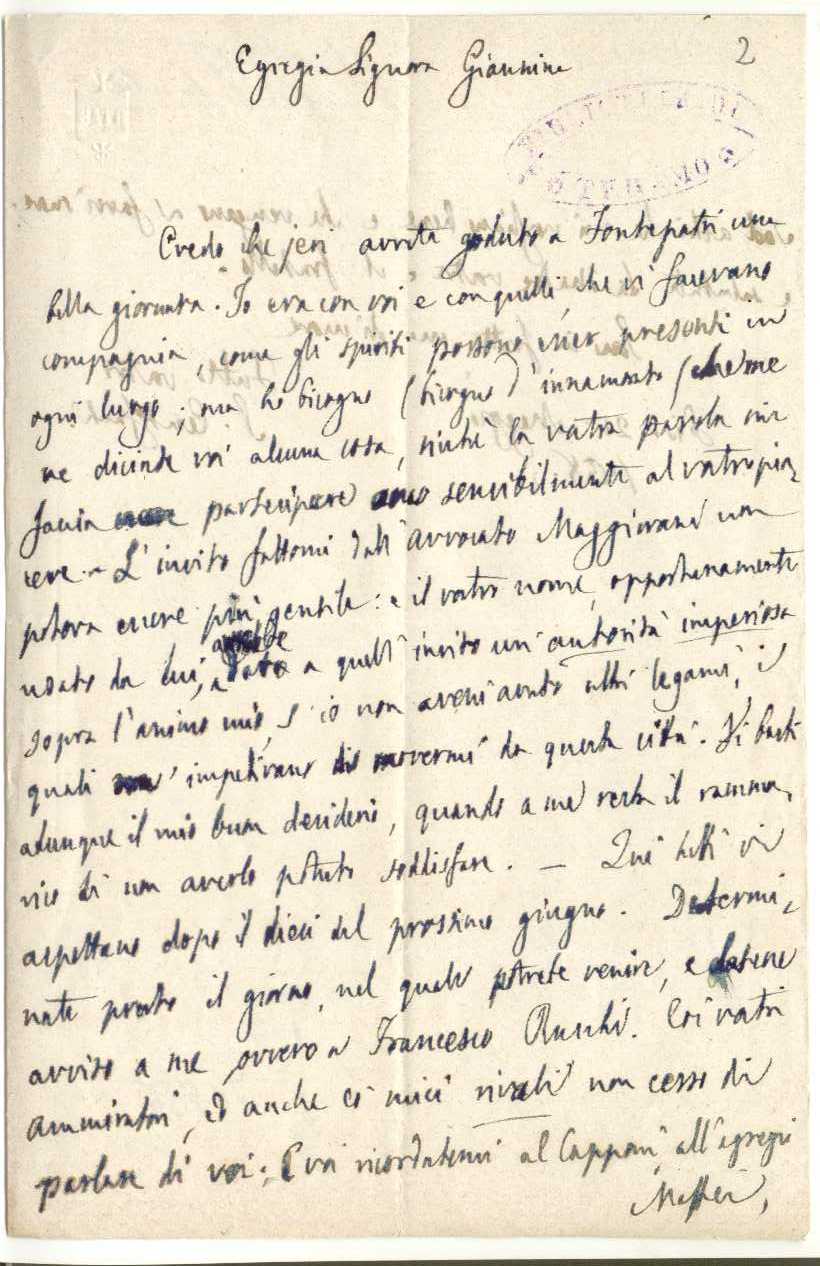 2
Egregia Signora Giannina
TERAMO
Credo che jeri avrete goduto a Fontepatri una
bella giornata. Io era con voi e con quelli, che vi facevano
compagnia, come gli spiriti possono esser presenti in
ogni luogo; ma ho bisogno (bisogno d'innamorato) che me
ne diciate voi alcuna cosa, sicchè la vostra parola mi
faccia partecipare sensibilmente al vostro pia-
cere. L'invito fattomi dall'avvocato Maggiorani non
poteva essere più gentile: e il vostro nome, opportunamente
usato da lui, a quell'invito un'autorità imperiosa
sopra l'animo mio, s'io non avessi avuto altri legami, i
quali impedivano di movermi da questa città. Vi basti
adunque il mio buon desiderio, quando a me resta il ramma-
rico di non averlo potuto soddisfare. — Quì tutti vi
aspettano dopo il dieci del prossimo giugno. Determi-
nate presto il giorno, nel quale potrete venire, e datene
avviso a me ovvero a Francesco. Coi vostri
ammiratori, ed anche coi miei rivali non cesso di
parlare di voi; E voi ricordatemi al Capponi all'egregio
Maffei,